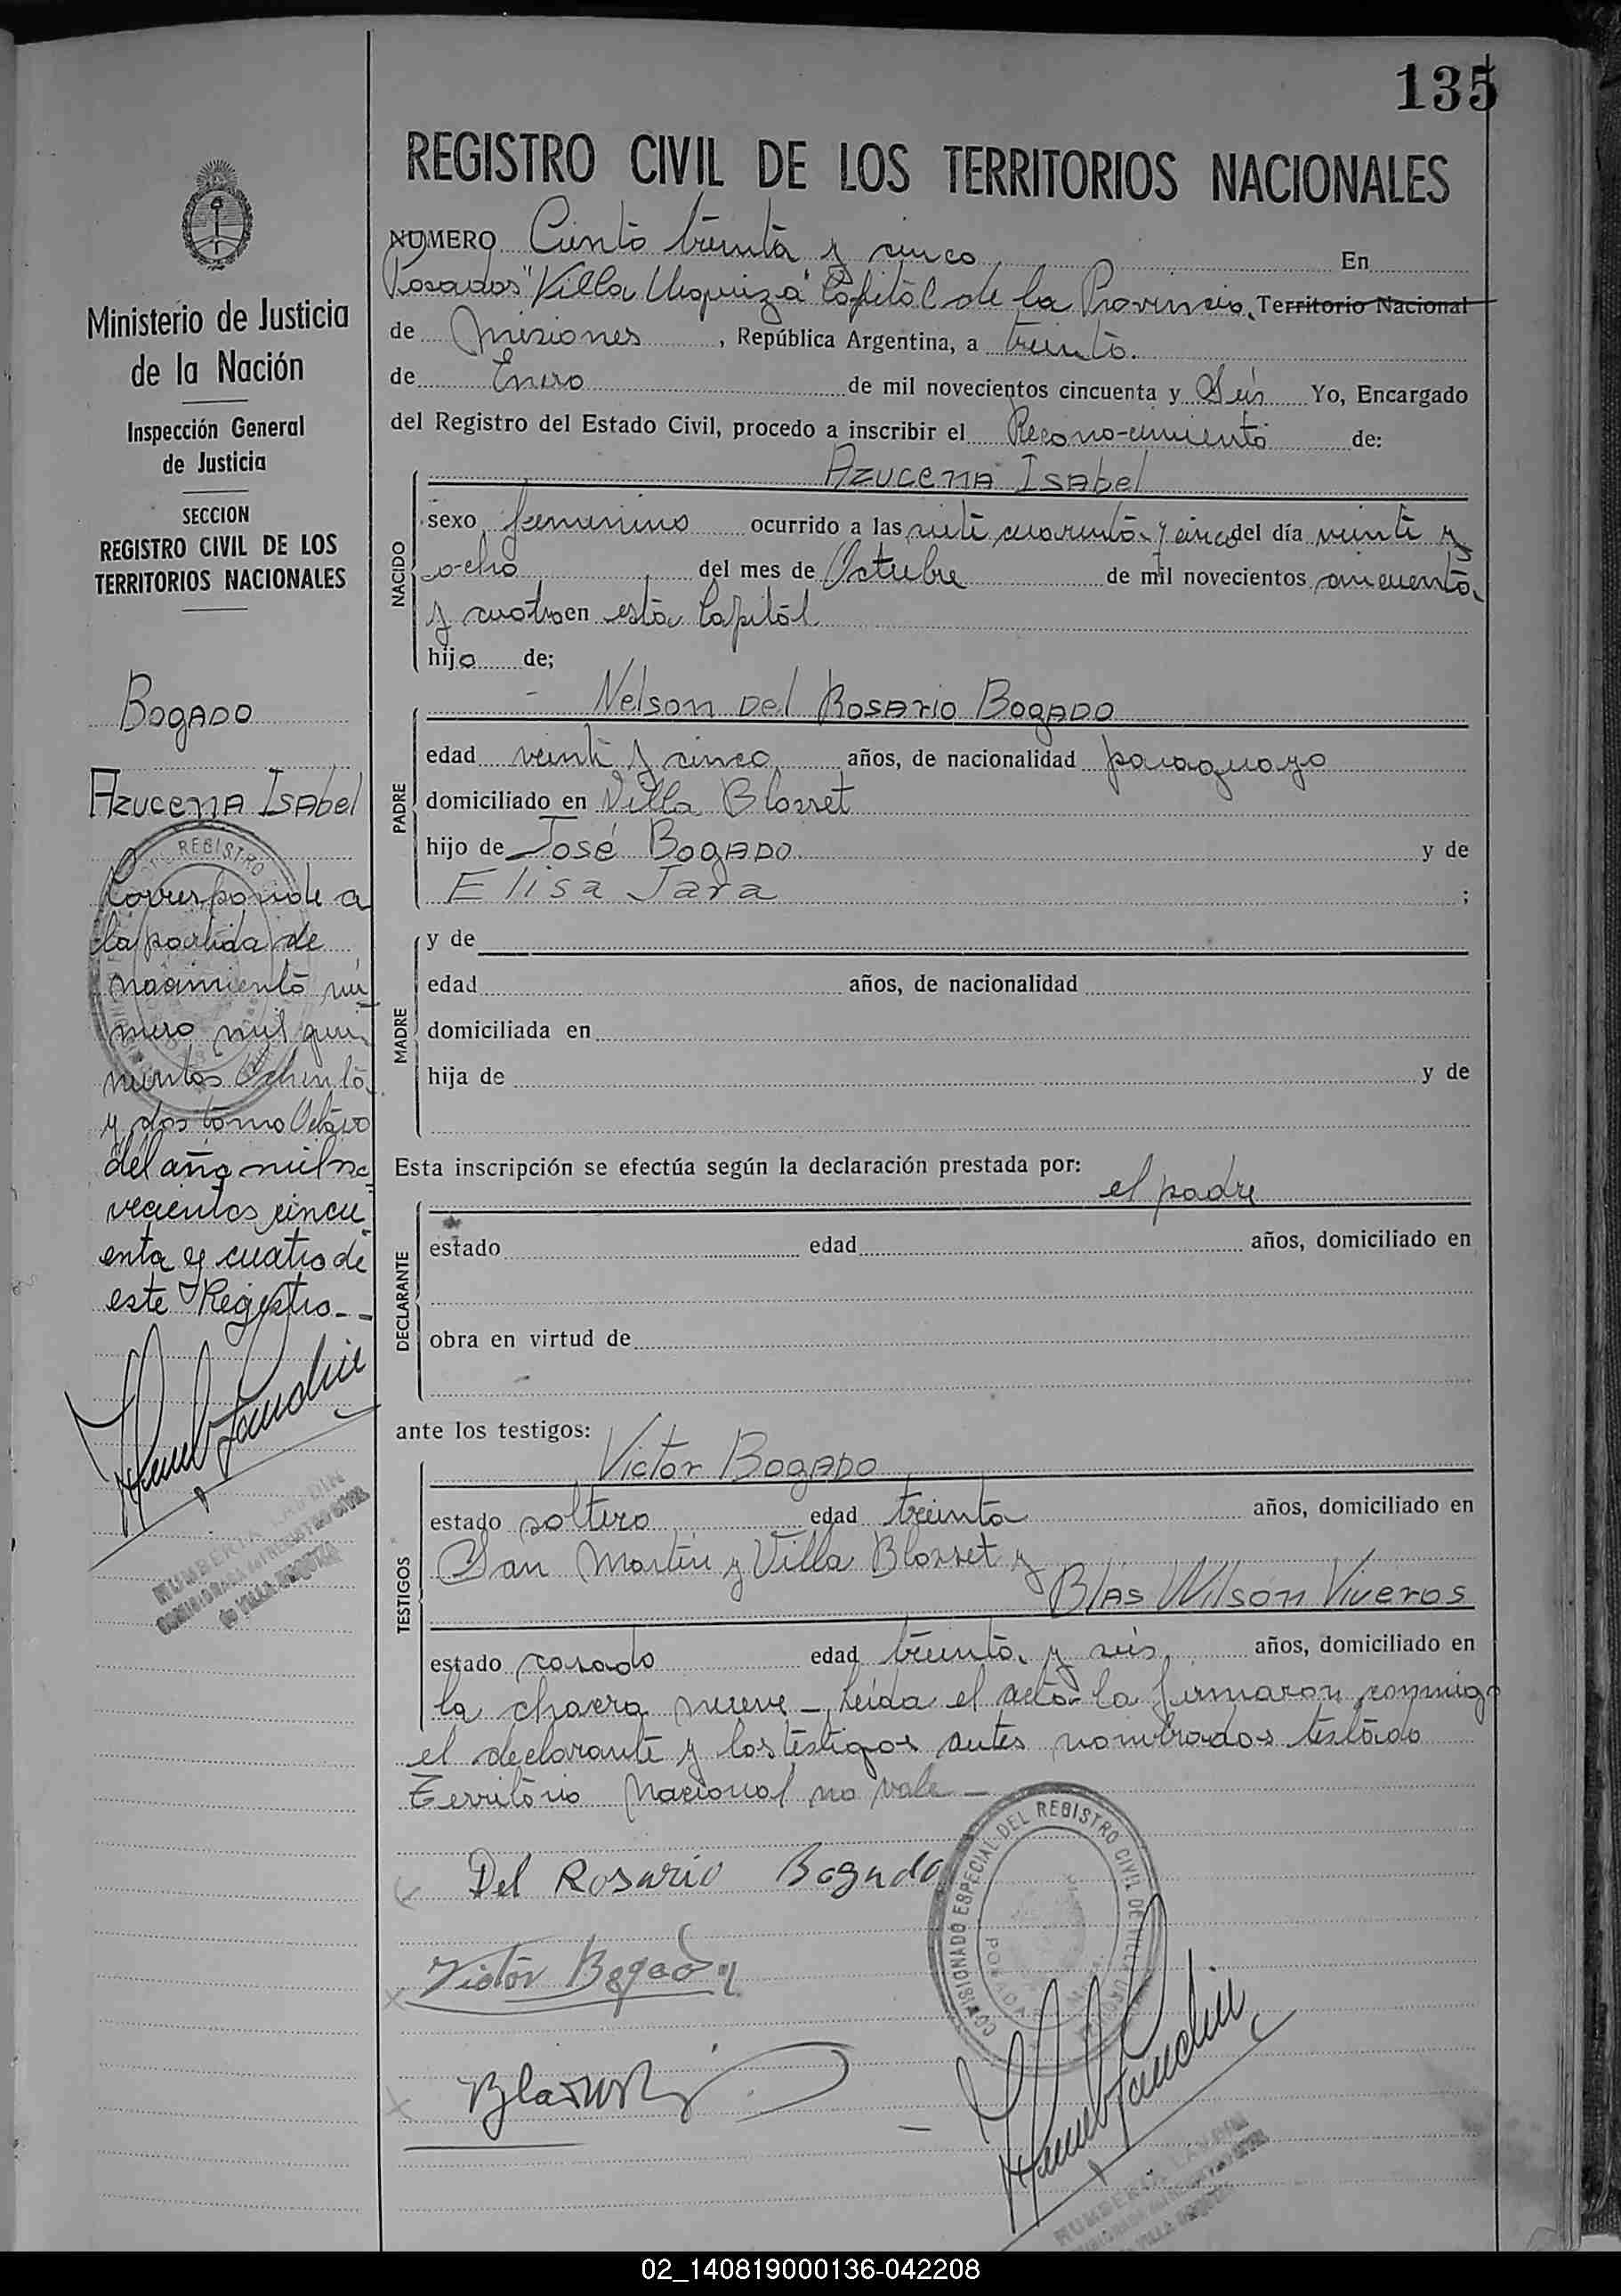 135
REGISTRO CIVIL DE LOS TERRITORIOS NACIONALES
NUMERO Ciento treinta y cinco En
Posadas "Villa Urquiza" Capital de la Provincia, Territorio Nacional
de Misiones, República Argentina, a treinta.
de Enero de mil novecientos cincuenta y Seis Yo, Encargado
del Registro del Estado Civil, procedo a inscribir el Recono-cimiento de:
Azucena Isabel
NACIDO
sexo femenino ocurrido a las siete cuarenta y cinco del día veinte y
ocho del mes de Octubre de mil novecientos cincuenta
y cuatro en esta Capital
hijo de;
PADRE
Nelson Del Rosario Bogado
edad veinte y cinco años, de nacionalidad paraguayo
domiciliado en Villa Blosset
hijo de José Bogado. y de
Elisa Jara ;
MADRE
y de
edad años, de nacionalidad
domiciliada en
hija de y de
Esta inscripción se efectúa según la declaración prestada por:
el padre
DECLARANTE
estado edad años, domiciliado en
obra en virtud de
ante los testigos:
TESTIGOS
Victor Bogado
estado soltero edad treinta años, domiciliado en
San Martin y Villa Blosset y
Blas Wilson Viveros
estado casado edad treinta y seis años, domiciliado en
la chacra nueve - Leida el acta la firmaron conmigo
el declarante y los testigos antes nombrados testado
Territorio Nacional no vale -
Del Rosario Bogado
Victor Bogado
COMISIONADO ESPECIAL DEL REGISTRO CIVIL DE VILLA URQUIZA
POSADAS
Ministerio de Justicia
de la Nación
Inspección General
de Justicia
SECCION
REGISTRO CIVIL DE LOS
TERRITORIOS NACIONALES
Bogado
Azucena Isabel
Corresponde a
la partida de
nacimiento nú-
mero mil qui-
nientos Ochenta
y dos tomo Octavo
del año mil no-
vecientos cincu-
enta y cuatro de
este Registro.--
REGISTRO
02_140819000136-042208